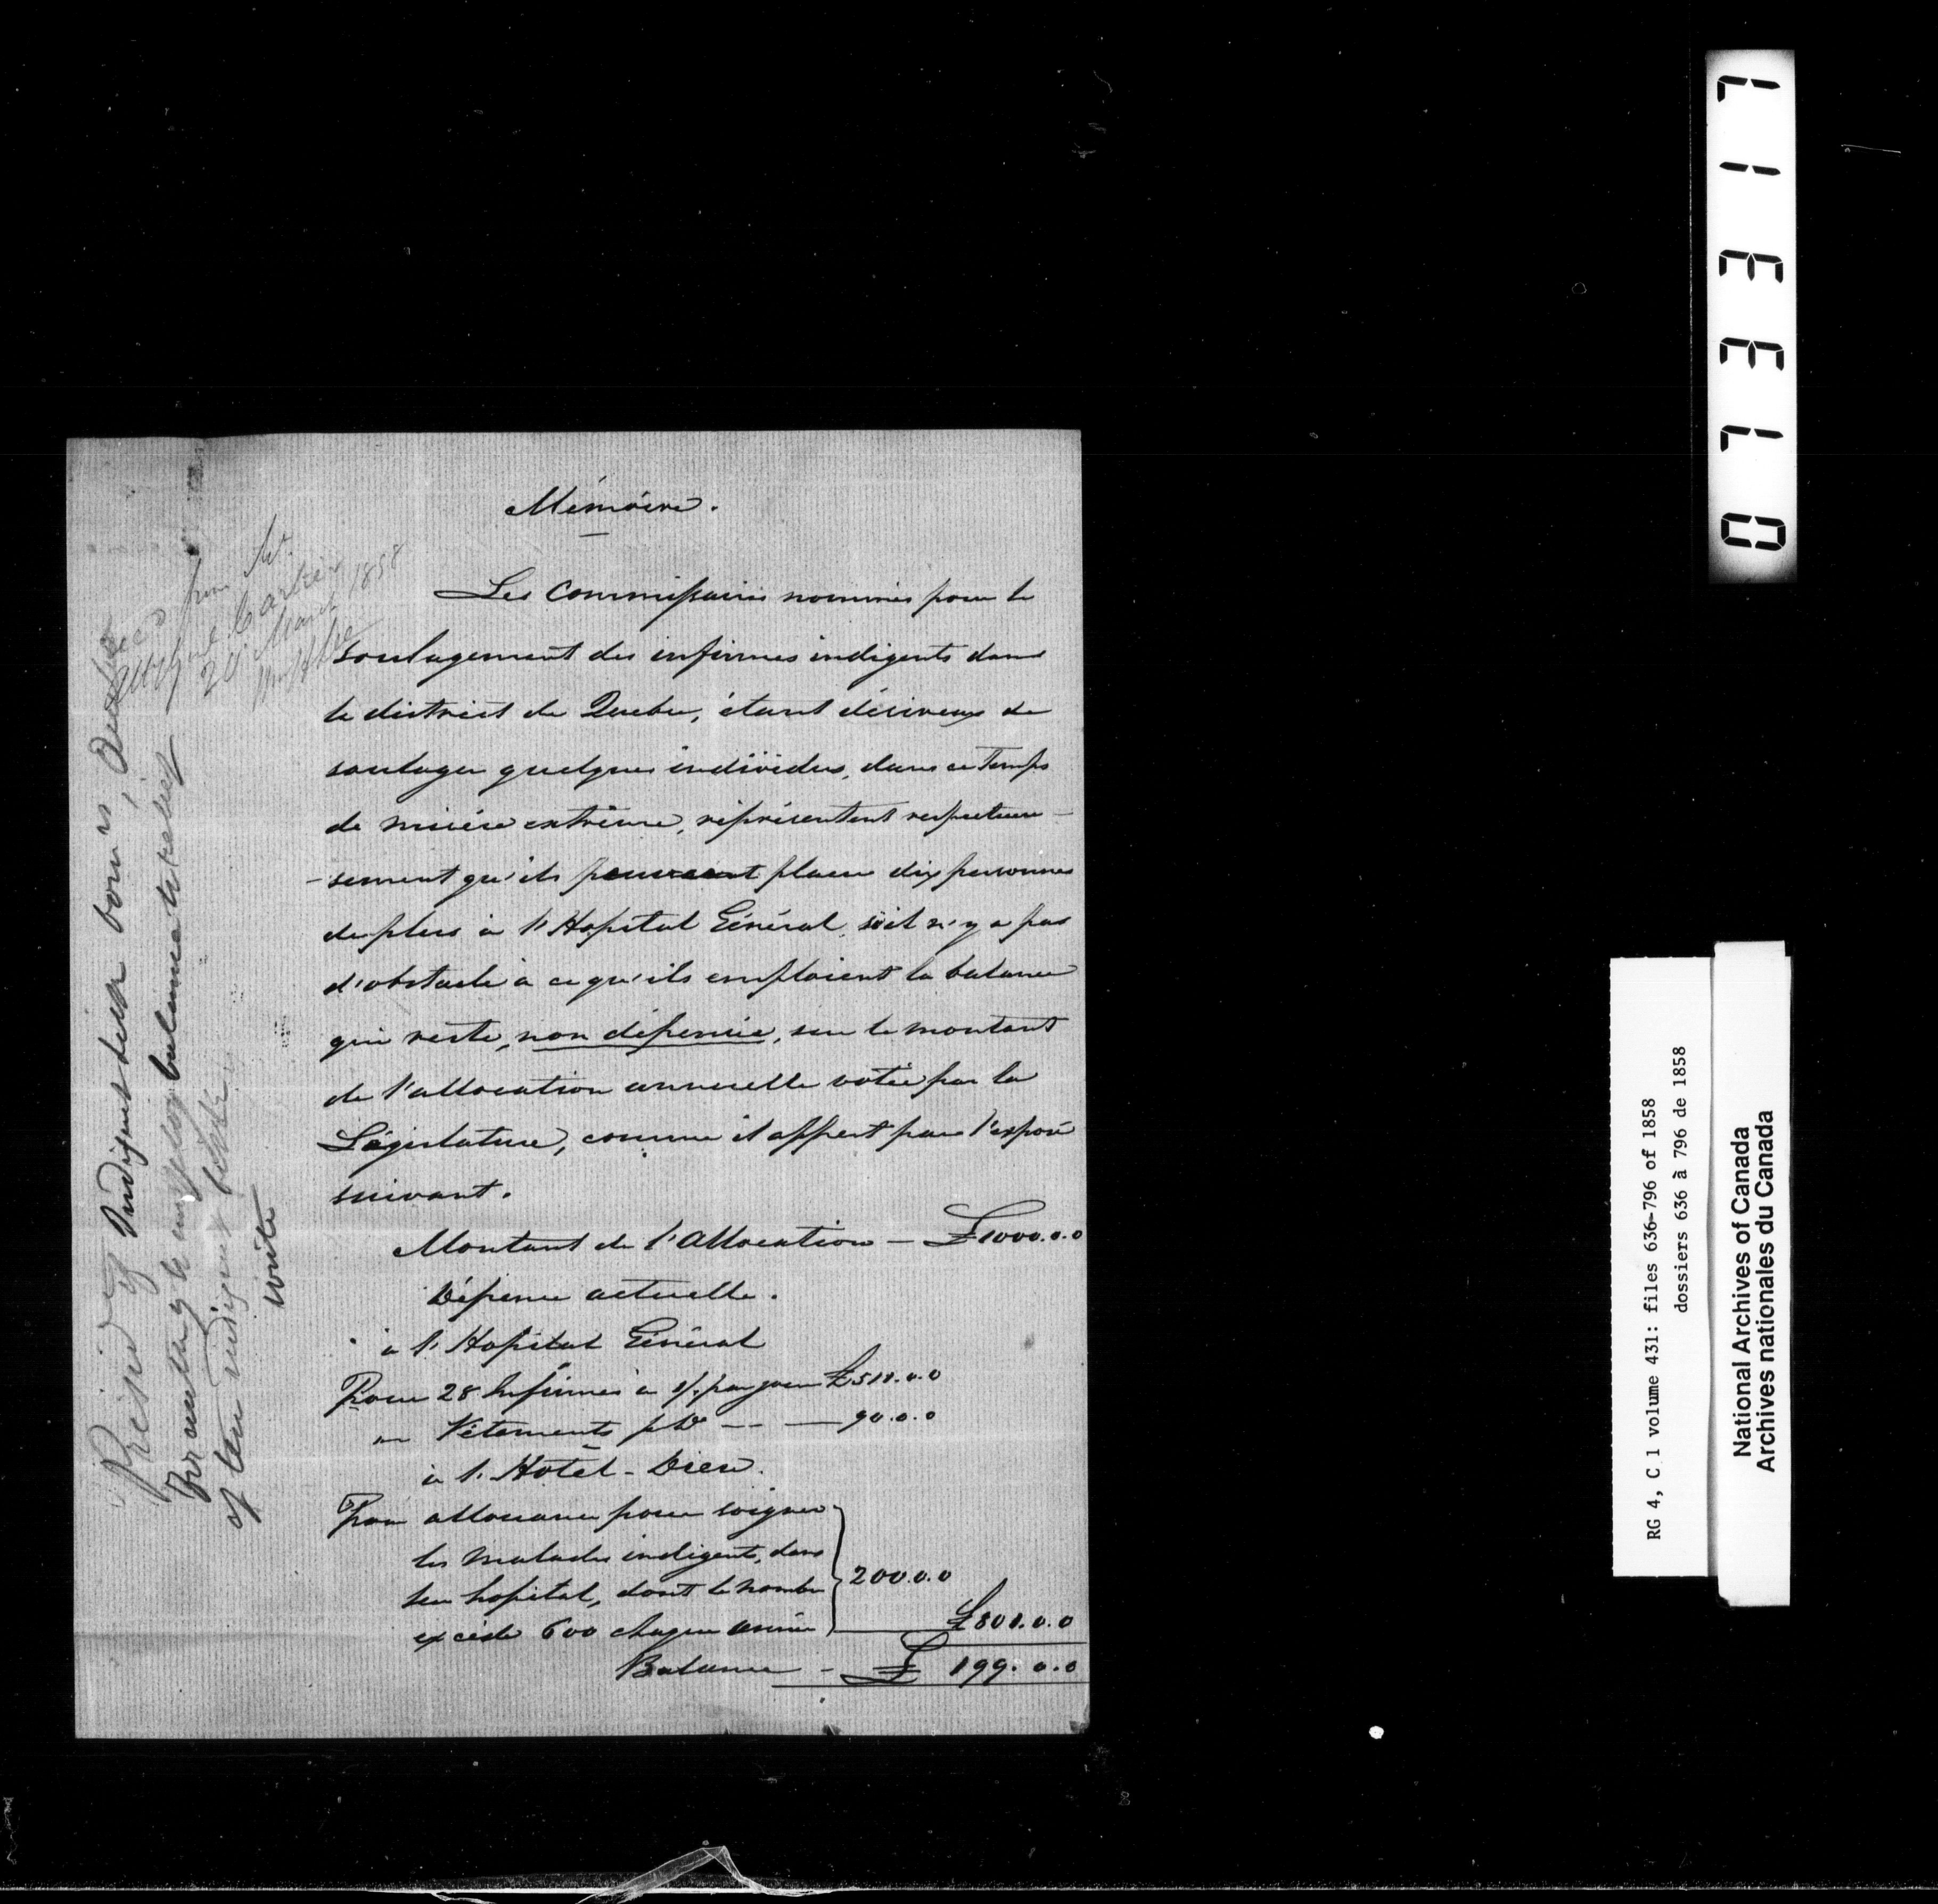 Mémoire.
Les Commissaires nommés pour le
soulagement des infirmes indigents dans
le district de Quebec, étant désireux de
soulager quelques individus, dans ce temps
de misère extrème, réprésentent respectueu-
-sement qu'ils peuvent placer dix personnes
de plus à l'Hopital Général, s'il n'y a pas
d'obstacle à ce qu'ils emploient la balance
qui reste, non dépensée, sur le montant
de l'allocation annuelle votée par la
Législature, comme il appert par l'exposé
suivant.
Montant de l'Allocation — £1000.0.0
Dépense actuelle.
à l'Hopital Général
Pour 28 Infirmes à 1/. par jour £511.0.0
" Vêtements pr Do — — 90.0.0
à l'Hotel-Dieu.
Pour allouance pour soigner
les malades indigents, dans
leur hopital, dont le nombre
excède 600 chaque année 200.0.0
£801.0.0
Balance - £ 199.0.0
from Mr.
Cartier
20 March 1858
Indigent sick Comrs, Quebec
for auth'y to employ balance to relief
of ten indigent sick
write
RG 4, C 1 volume 431: files 636-796 of 1858
dossiers 636 à 796 de 1858
National Archives of Canada
Archives nationales du Canada
073317